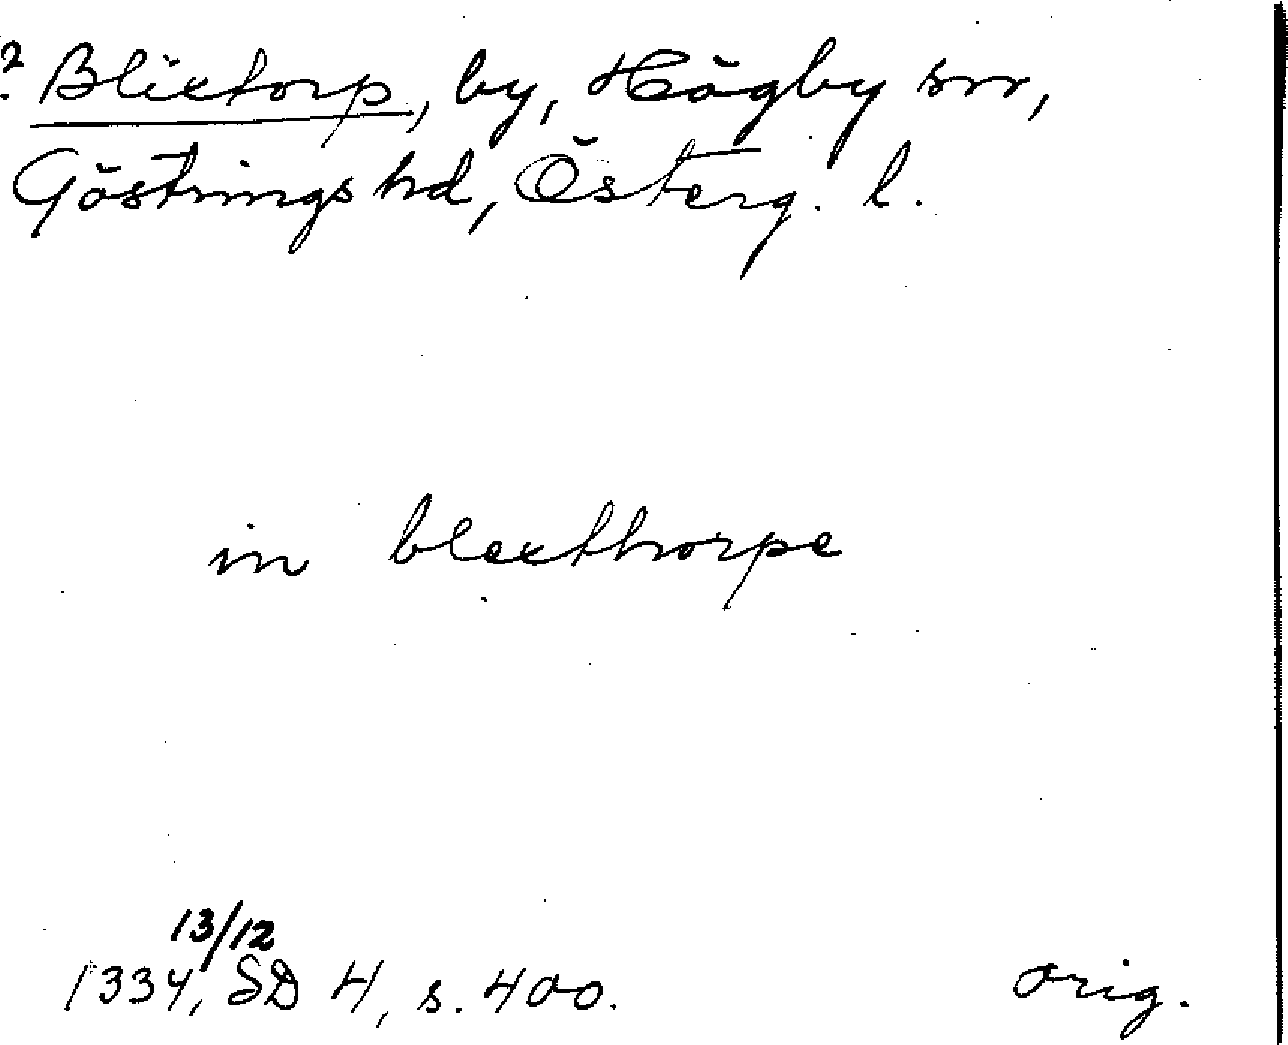 ? Blixtorp, by, Högby sn,
Göstrings hd, Österg. l.
in blexthorpe
13/12
1334, SD 4, s. 400. orig.